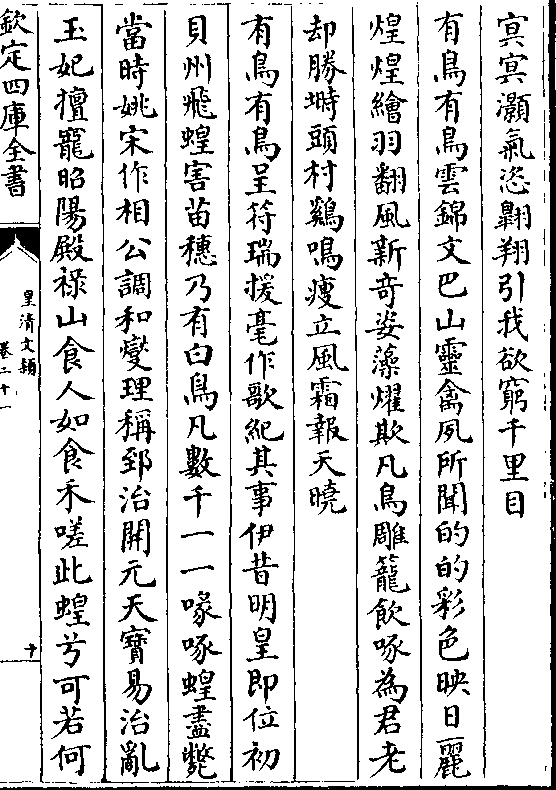 冥冥灝氣恣翺翔引我欲窮千里目
有鳥有鳥雲錦文巴山靈禽夙所聞的的彩色映日麗
煌煌繪羽翻風新奇姿藻燿欺凡鳥雕籠飲啄為君老
却勝塒頭村鷄鳴瘦立風霜報天曉
有鳥有鳥呈符瑞援毫作歌紀其事伊昔明皇即位初
貝州飛蝗害苗穗乃有白鳥凡數千一一喙啄蝗盡斃
當時姚宋作相公調和燮理稱郅治開元天寶易治亂
玉妃擅寵昭陽殿祿山食人如食禾嗟此蝗兮可若何
欽定四庫全書
皇清文穎
卷二十一
十